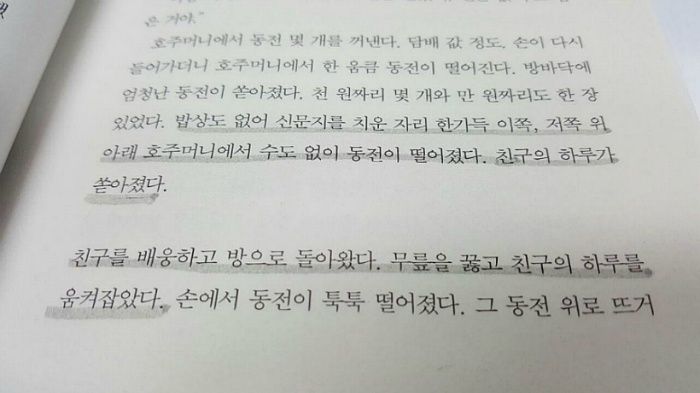 은 거야."
호주머니에서 동전 몇 개를 꺼낸다. 담배 값 정도. 손이 다시
들어가더니 호주머니에서 한 움큼 동전이 떨어진다. 방바닥에
엄청난 동전이 쏟아졌다. 천 원짜리 몇 개와 만 원짜리도 한 장
있었다. 밥상도 없어 신문지를 치운 자리 한가득 이쪽, 저쪽 위
아래 호주머니에서 수도 없이 동전이 떨어졌다. 친구의 하루가
쏟아졌다.
친구를 배웅하고 방으로 돌아왔다. 무릎을 꿇고 친구의 하루를
움켜잡았다. 손에서 동전이 툭툭 떨어졌다. 그 동전 위로 뜨거